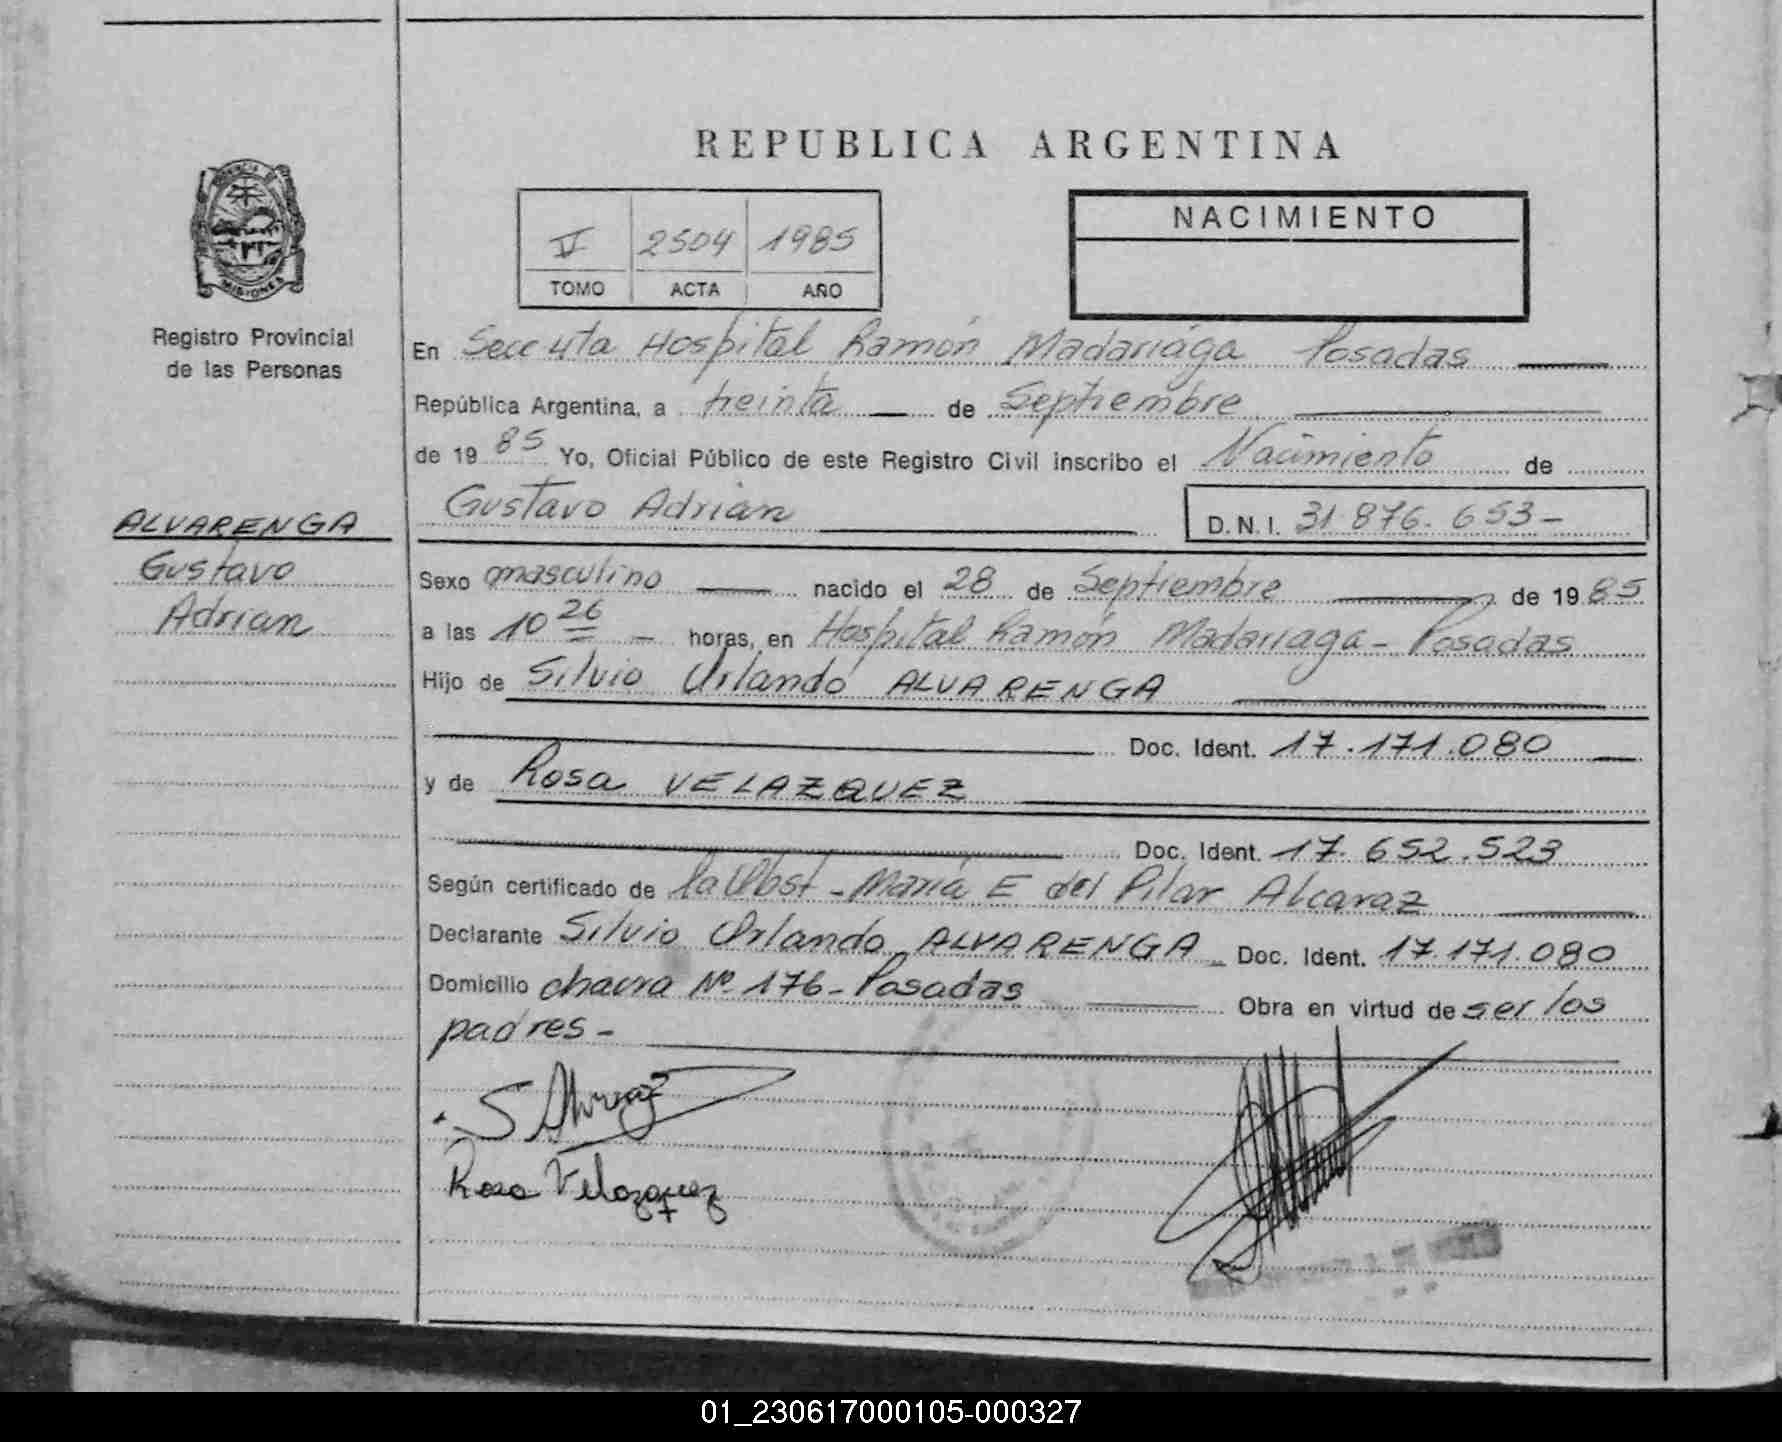 REPUBLICA ARGENTINA
PROVINCIA DE
MISIONES
Registro Provincial
de las Personas
V 2504 1985
TOMO ACTA AÑO
NACIMIENTO
En Secc 4ta Hospital Ramón Madariaga Posadas
República Argentina, a treinta de Septiembre
de 19 85 Yo, Oficial Público de este Registro Civil inscribo el Nacimiento de
Gustavo Adrian D.N.I. 31.876.653-
ALVARENGA
Gustavo
Adrian
Sexo masculino nacido el 28 de Septiembre de 19 85
a las 10 26 horas, en Hospital Ramón Madariaga - Posadas
Hijo de Silvio Orlando ALVARENGA
Doc. Ident. 17.171.080
y de Rosa VELAZQUEZ
Doc. Ident. 17.652.523
Según certificado de la Obst - María E del Pilar Alcaraz
Declarante Silvio Orlando ALVARENGA Doc. Ident. 17.171.080
Domicilio chacra Nº 176 - Posadas Obra en virtud de ser los
padres -
Rosa Velazquez
01_230617000105-000327